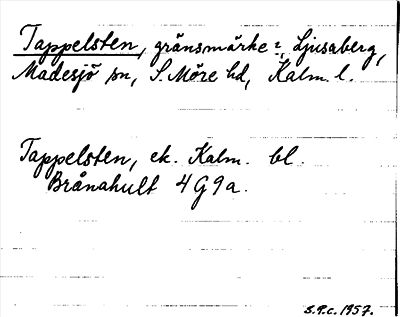 Tappelsten, gränsmärke ?, Ljusaberg,
Madesjö sn, S. Möre hd, Kalm. l.
Tappelsten, ek. Kalm. bl.
Brånahult 4G9a.
S.P.C. 1957.